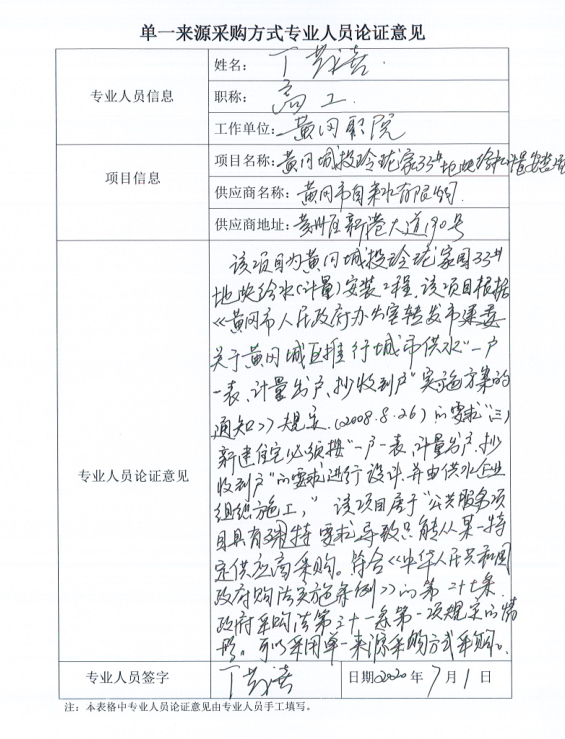 单一来源采购方式专业人员论证意见
专业人员信息
姓名：丁
职称：高工
工作单位：黄冈职院
项目信息
项目名称：黄冈城投玲珑家33#地块给水计量安装
供应商名称：黄冈市自来水有限公司
供应商地址：黄州区新港大道190号
专业人员论证意见
该项目为黄冈城投玲珑家园33#
地块给水(计量)安装工程，该项目根据
《黄冈市人民政府办公室转发市建委
关于黄冈城区推行城市供水"一户
一表、计量出户、抄收到户"实施方案的
通知》规定，(2008.8.26)的要求"(三)
新建住宅必须按"一户一表、计量出户、抄
收到户"的要求进行设计，并由供水企业
组织施工，"该项目属于"公共服务项
目具有特殊要求，导致只能从某一特
定供应商采购。符合《中华人民共和国
政府购法实施条例》的第二十七条，
政府采购法第三十一条第一项规定的情
形。可以采用单一来源采购方式采购。
专业人员签字
丁
日期2020年7月1日
注：本表格中专业人员论证意见由专业人员手工填写。